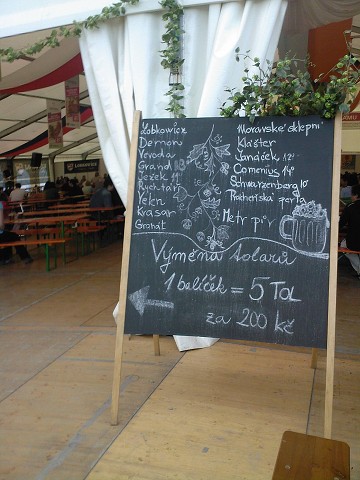 Lobkowicz
Démon
Vévoda
Grand
Ježek 11°
Rychtář
Velen
Krasar
Granát
Moravské sklepní
Klášter
Janáček 12°
Comenius 14°
Schwarzenberg 10
Prácheňská perla
Metr piv
Výměna tolarů
1 balíček = 5 TOL
za 200 kč